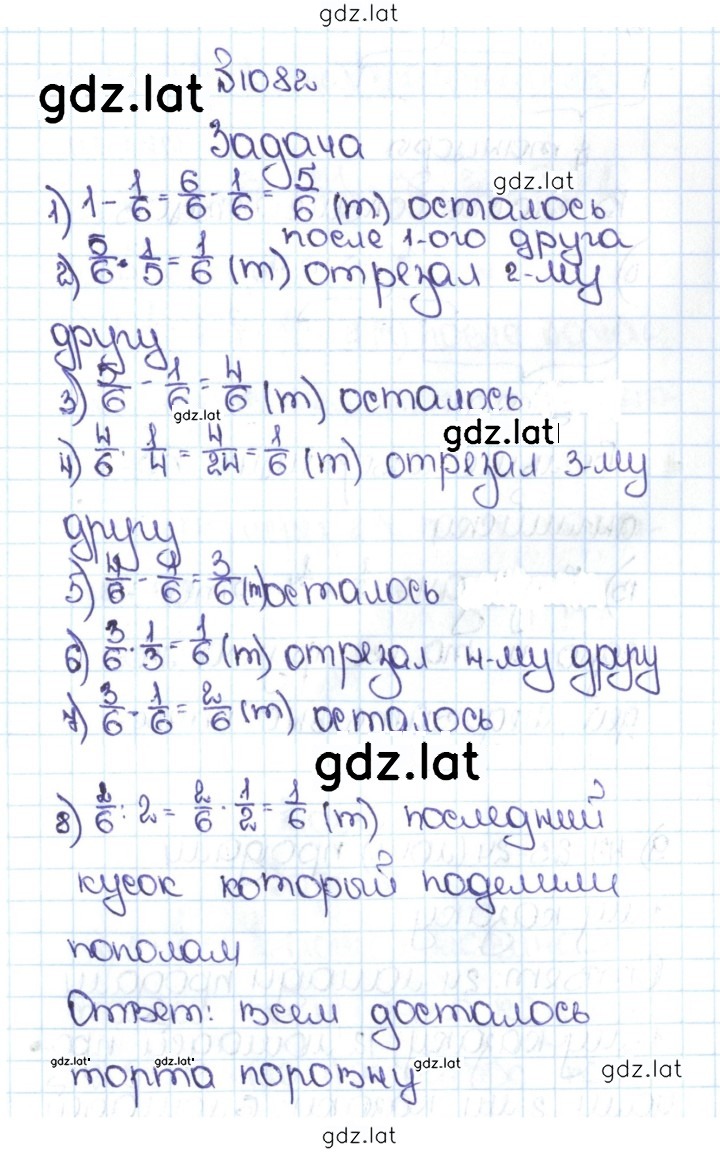 gdz.lat
gdz.lat
№1082
Задача
gdz.lat
1) 1 - 1/6 = 6/6 - 1/6 = 5/6 (т) осталось
после 1-ого друга
2) 5/6 · 1/5 = 1/6 (т) отрезал 2-му
другу
3) 5/6 - 1/6 = 4/6 (т) осталось
gdz.lat
gdz.lat
4) 4/6 · 1/4 = 4/24 = 1/6 (т) отрезал 3-му
другу
5) 4/6 - 1/6 = 3/6 (т) осталось
6) 3/6 · 1/3 = 1/6 (т) отрезал 4-му другу
7) 3/6 - 1/6 = 2/6 (т) осталось
gdz.lat
8) 2/6 : 2 = 2/6 · 1/2 = 1/6 (т) последний
кусок который поделили
пополам
Ответ: всем досталось
gdz.lat gdz.lat gdz.lat gdz.lat
торта поровну
gdz.lat